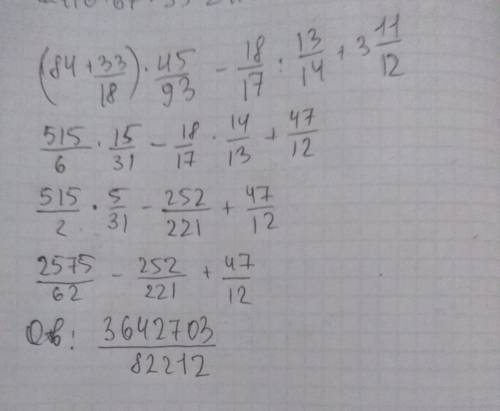 (84 + 33/18) · 45/93 - 18/17 : 13/14 + 3 11/12
515/6 · 15/31 - 18/17 · 14/13 + 47/12
515/2 · 5/31 - 252/221 + 47/12
2575/62 - 252/221 + 47/12
Отв: 3642703/82212